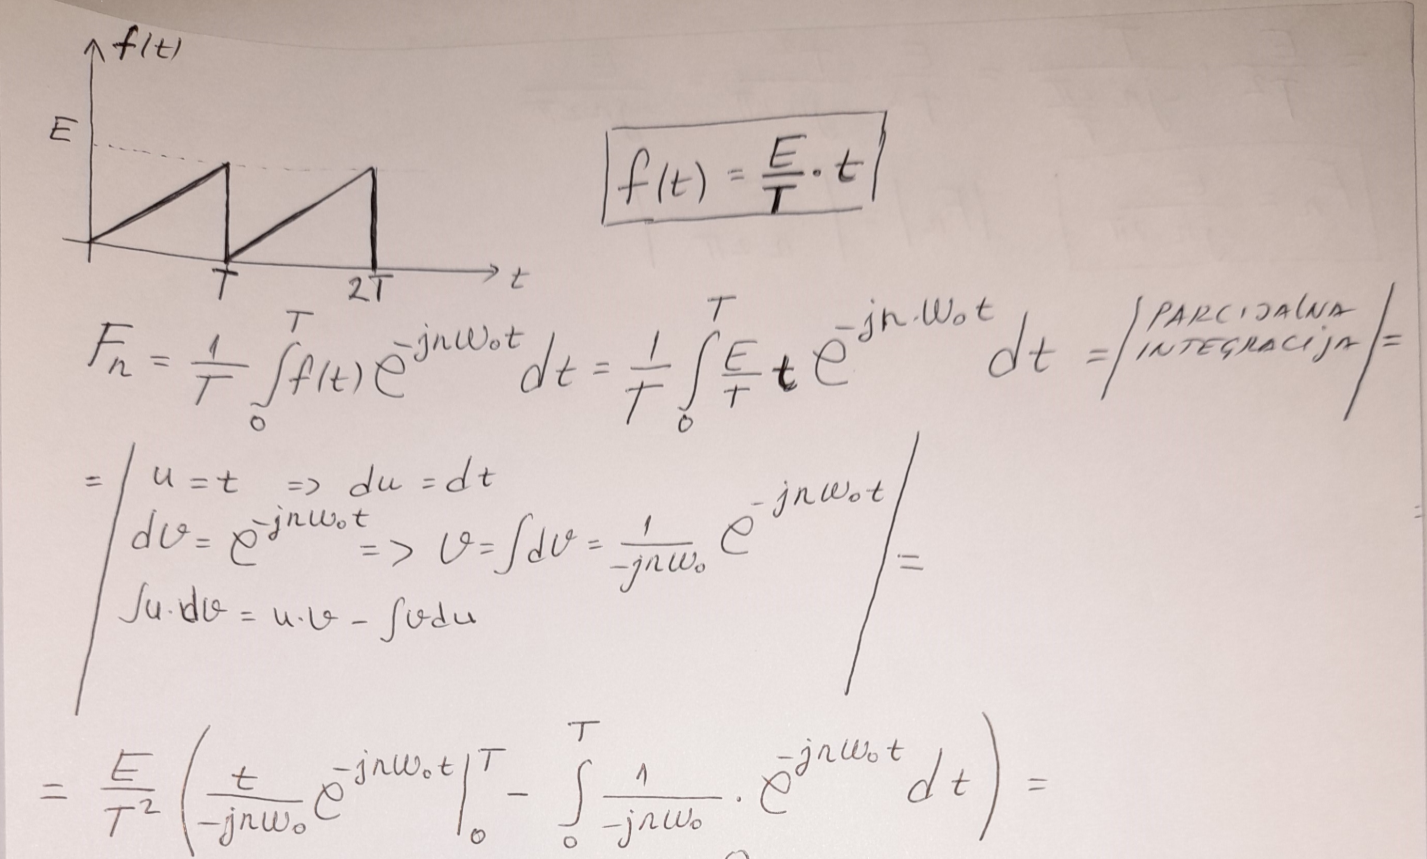 f(t)
E
f(t) = E/T · t
T 2T t
Fₙ = 1/T ∫₀ᵀ f(t) e^(-jnω₀t) dt = 1/T ∫₀ᵀ E/T t e^(-jn·ω₀t) dt = | PARCIJALNA INTEGRACIJA | =
= | u = t => du = dt
dv = e^(-jnω₀t) => v = ∫dv = 1/(-jnω₀) e^(-jnω₀t) | =
∫u·dv = u·v - ∫vdu
= E/T² ( t/(-jnω₀) e^(-jnω₀t) |₀ᵀ - ∫₀ᵀ 1/(-jnω₀) · e^(-jnω₀t) dt ) =